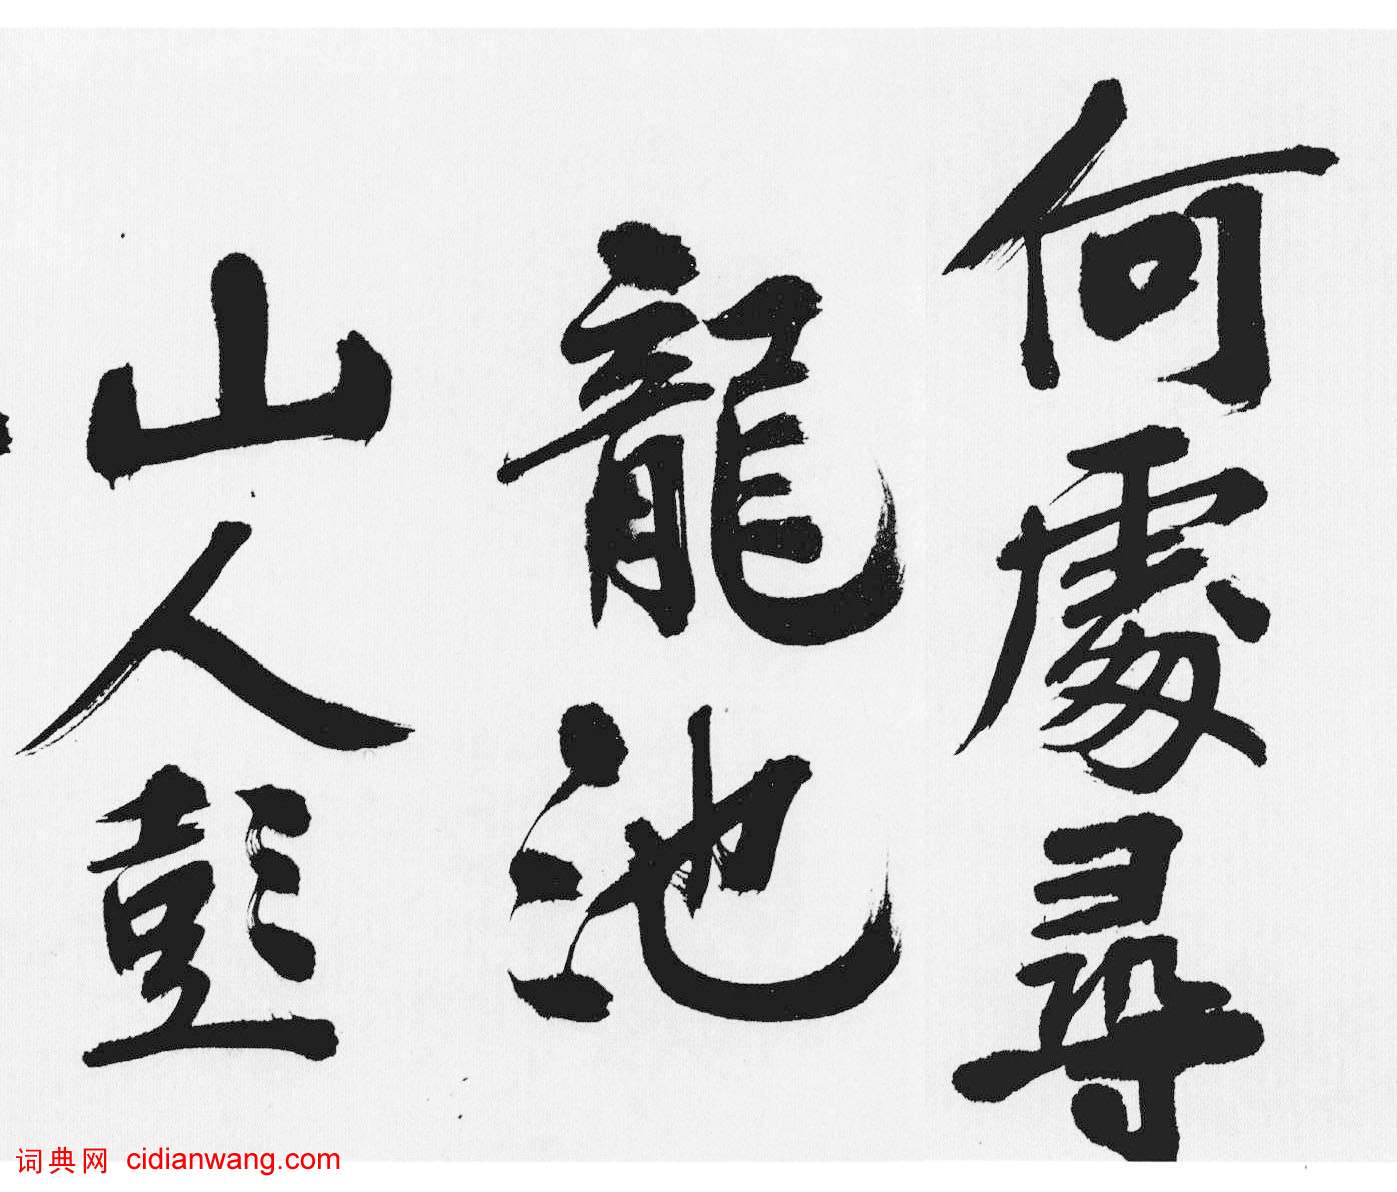 何處尋
龍池
山人彭
词典网 cidianwang.com